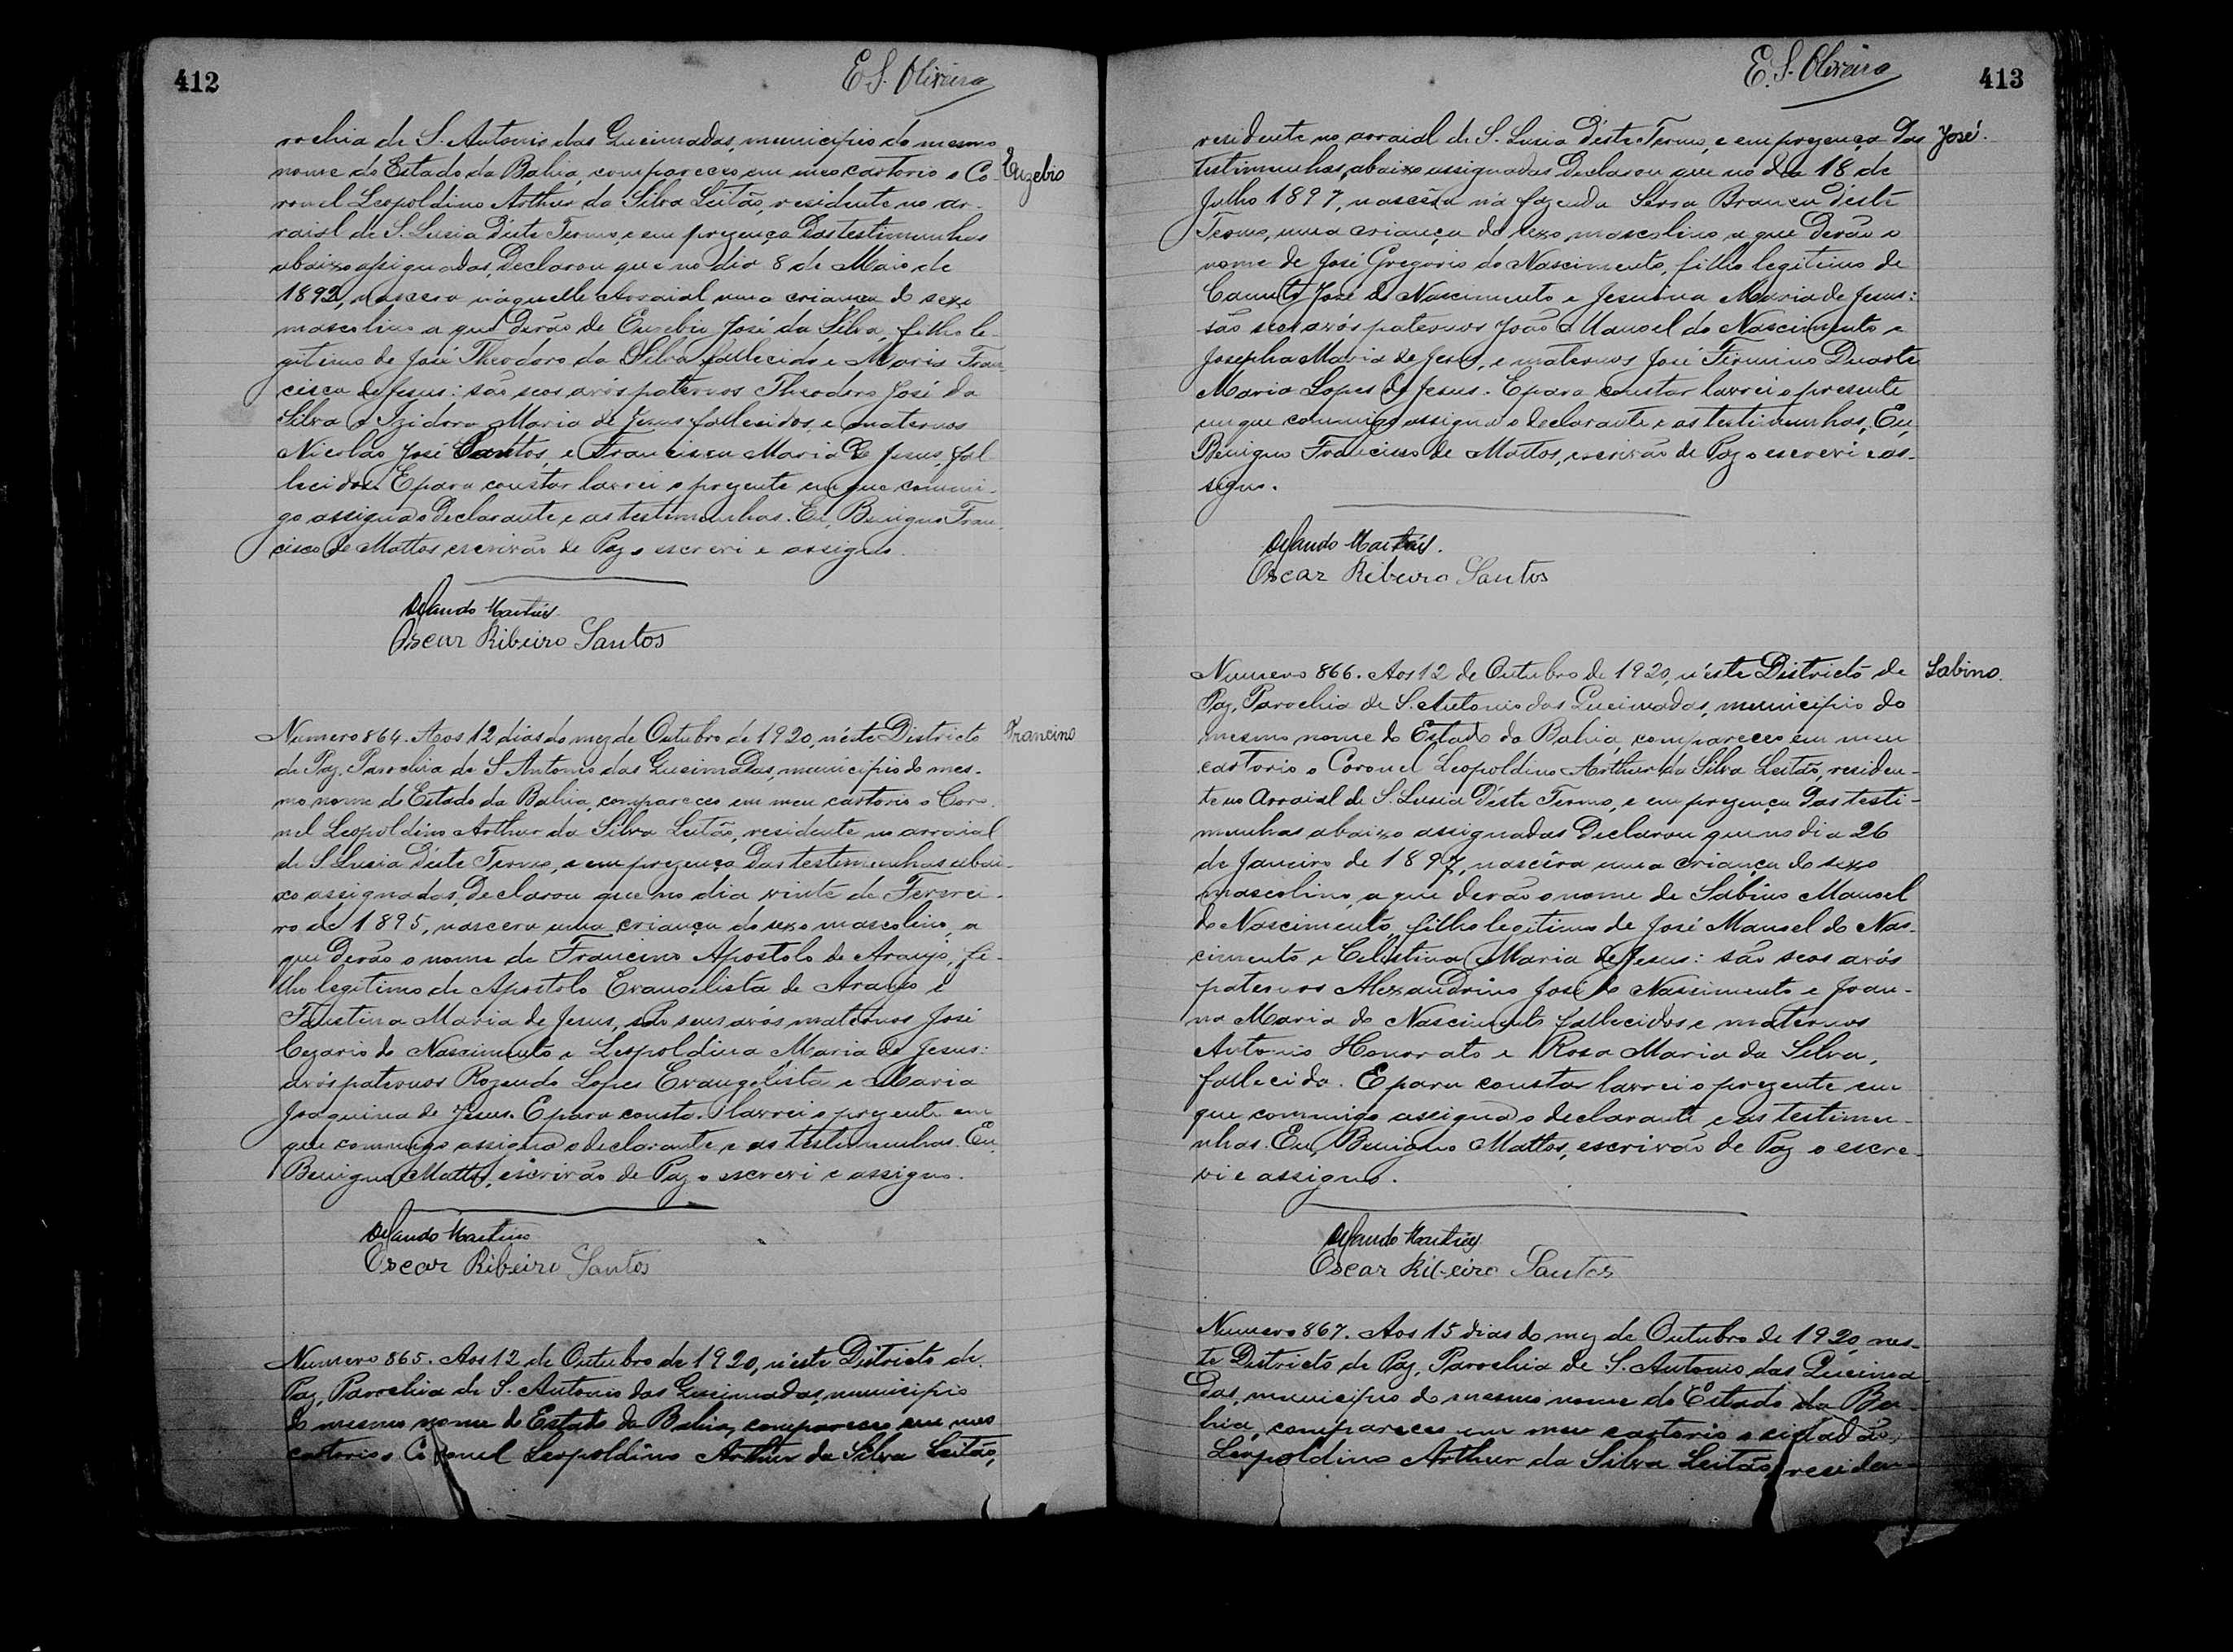 412
E. S. Oliveira
rochia de S. Antonio das Queimadas, municipio do mesmo
nome do Estado da Bahia, compareceo em meo cartorio o Co-
Euzebio
ronel Leopoldino Arthur da Silva Leitão, residente no ar-
raial de S. Lusia d'este Termo, e em prezença das testimunhas
abaixo assignadas, declarou que no dia 8 de Maio de
1892, nascera n'aquelle Arraial uma criança do sexo
masculino a que derão de Euzebio José da Silva, filho le-
gitimo de José Theodoro da Silva fallecido e Maria Fran-
cisca de Jesus: são seos avós paternos Theodoro José da
Silva e Izidora Maria de Jesus fallecidos, e maternos
Nicoláo José Santos, e Francisca Maria de Jesus, fal-
lecidos. E para constar lavrei o prezente em que commi-
go assigna o declarante e as testimunhas. Eu, Benigno Fran-
cisco de Mattos, escrivão de Paz o escrevi e assigno.
Orlando Martins
Oscar Ribeiro Santos
Numero 864. Aos 12 dias do mez de Outubro de 1920, n'este Districto
Francino
de Paz, Parochia de S. Antonio das Queimadas, municipio do mes-
mo nome do Estado da Bahia, compareceo em meu cartorio o Coro-
nel Leopoldino Arthur da Silva Leitão, residente no arraial
de S. Lusia d'este Termo, e em prezença das testimunhas abai-
xo assignadas, declarou que no dia vinte de Feverei-
ro de 1895, nascera uma criança do sexo masculino, a
que derão o nome de Francino Apostolo de Araujo, fi-
lho legitimo de Apostolo Evangelista de Araujo e
Faustina Maria de Jesus, são seus avós maternos José
Cezario do Nascimento e Leopoldina Maria de Jesus:
avós paternos Rozendo Lopes Evangelista e Maria
Joaquina de Jesus. E para constar lavrei o prezente em
que commigo assigna o declarante e as testimunhas. Eu,
Benigno Mattos, escrivão de Paz o escrevi e assigno.
Orlando Martins
Oscar Ribeiro Santos
Numero 865. Aos 12 de Outubro de 1920, n'este Districto de
Paz, Parochia de S. Antonio das Queimadas, municipio
do mesmo nome do Estado da Bahia, compareceo em meo
cartorio o Coronel Leopoldino Arthur da Silva Leitão,
E. S. Oliveira
413
residente no arraial de S. Lusia d'este Termo, e em prezença das
José.
testimunhas abaixo assignadas declarou que no dia 18 de
Julho 1897, nascêra na fazenda Serra Branca d'este
Termo, uma criança do sexo masculino a que derão o
nome de José Gregorio do Nascimento, filho legitimo de
Canuto José do Nascimento e Jesuina Maria de Jesus:
são seos avós paternos João Manoel do Nascimento e
Josepha Maria de Jesus, e maternos José Firmino Duarte
Maria Lopes de Jesus. E para constar lavrei o presente
em que commigo assigna o declarante e as testimunhas. Eu,
Benigno Francisco de Mattos, escrivão de Paz o escrevi e as-
signo.
Orlando Martins.
Oscar Ribeiro Santos
Numero 866. Aos 12 de Outubro de 1920, n'este Districto de
Sabino.
Paz, Parochia de S. Antonio das Queimadas, municipio do
mesmo nome do Estado da Bahia, compareceo em meu
cartorio o Coronel Leopoldino Arthur da Silva Leitão, residen-
te no Arraial de S. Lusia d'este Termo, e em prezença das testi-
munhas abaixo assignadas declarou que no dia 26
de Janeiro de 1897, nascêra uma criança do sexo
masculino, a que derão o nome de Sabino Manoel
do Nascimento, filho legitimo de José Manoel do Nas-
cimento e Celestina Maria de Jesus: são seos avós
paternos Alexandrino José do Nascimento e Joan-
na Maria do Nascimento fallecidos e maternos
Antonio Honorato e Rosa Maria da Silva,
fallecida. E para constar lavrei o prezente em
que commigo assigna o declarante e as testimu-
nhas. Eu, Benigno Mattos, escrivão de Paz o escre-
vi e assigno.
Orlando Martins
Oscar Ribeiro Santos
Numero 867. Aos 15 dias do mez de Outubro de 1920, nes-
te Districto de Paz, Parochia de S. Antonio das Queima-
das, municipio do mesmo nome do Estado da Ba-
hia, compareceo em meu cartorio o cidadão
Leopoldino Arthur da Silva Leitão, residen-